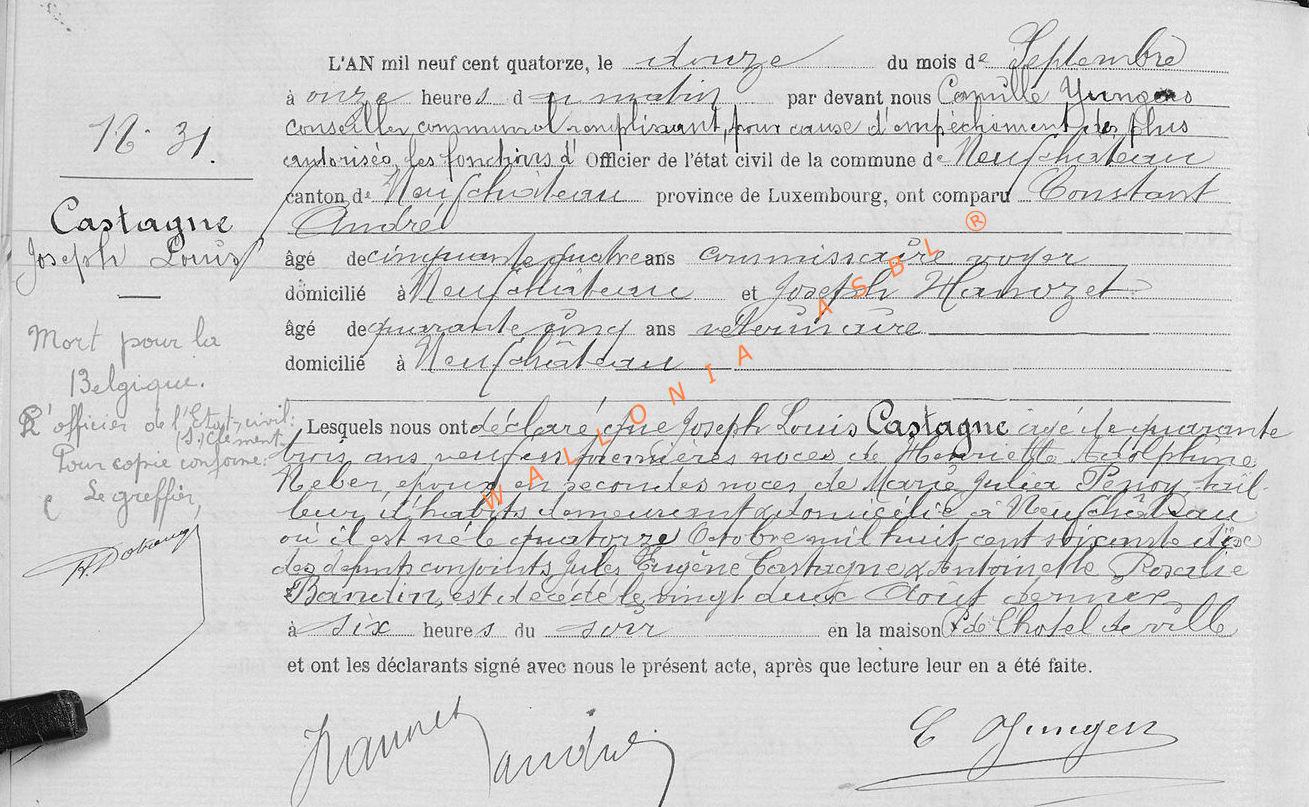 L'AN mil neuf cent quatorze, le douze du mois de Septembre
à onze heures du matin par devant nous Camille Yungers
conseiller communal remplissant, pour cause d'empêchement des plus
autorisés, les fonctions d' Officier de l'état civil de la commune de Neufchâteau
canton de Neufchâteau province de Luxembourg, ont comparu Constant
André
âgé de cinquante quatre ans commissaire voyer
domicilié à Neufchâteau et Joseph Hanozet
âgé de quarante cinq ans vétérinaire
domicilié à Neufchâteau
Lesquels nous ont déclaré que Joseph Louis Castagne âgé de quarante
trois ans veuf en premières noces de Henriette Adolphine
Neber, époux en secondes noces de Marie Julia Penoy, tail-
leur d'habits demeurant & domicilié à Neufchâteau
où il est né le quatorze Octobre mil huit cent soixante dix
des défunts conjoints Jules Eugène Castagne & Antoinette Rosalie
Baudin, est décédé le vingt deux Août dernier
à six heures du soir en la maison de l'hotel de ville
et ont les déclarants signé avec nous le présent acte, après que lecture leur en a été faite.
André
C Yungers
N° 31.
Castagne
Joseph Louis
Mort pour la
Belgique.
L'officier de l'Etat-civil:
(s) Clément
Pour copie conforme:
Le greffier,
WALLONIA ASBL ®